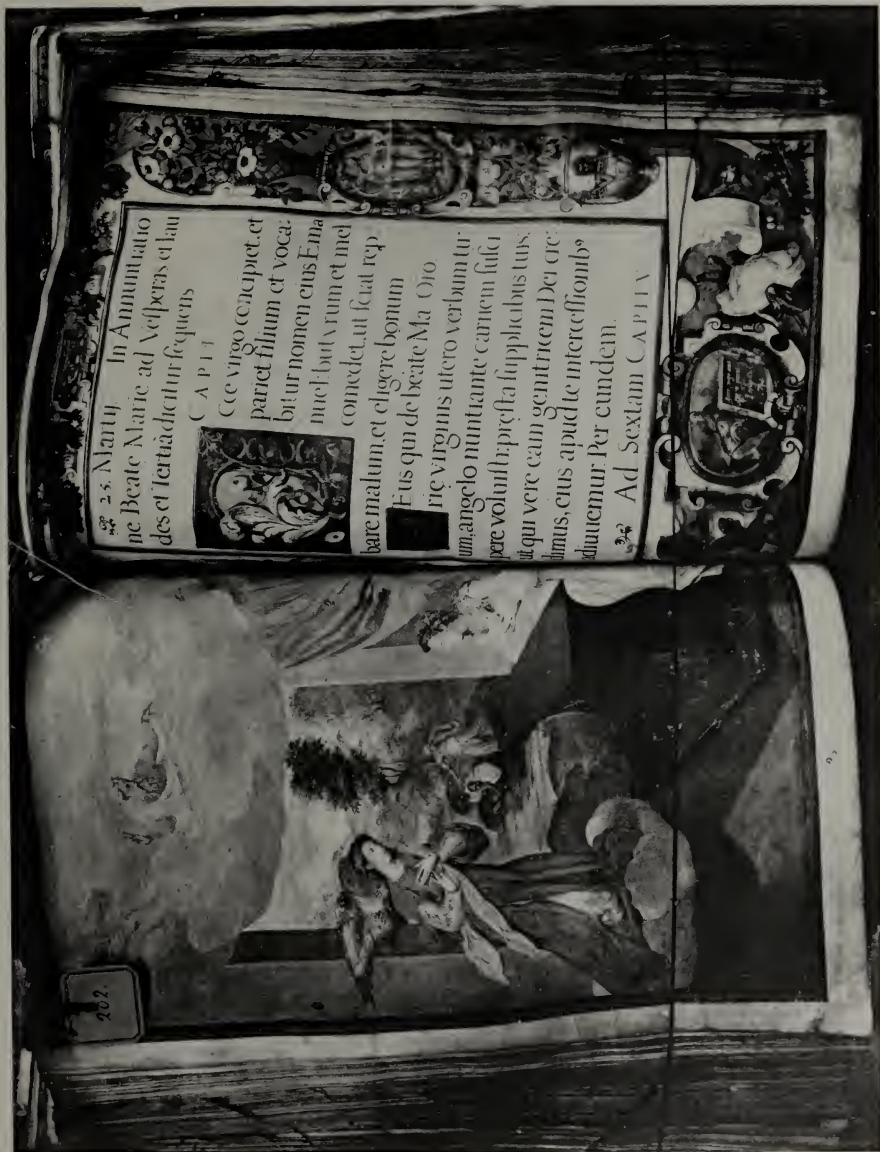 202.
25. Martij. In Annuntiatio
ne Beate Marie ad Vesperas et lau
des et Tertiã dicitur sequens
CAPIT
Cce virgo concipiet, et
pariet filium et voca:
bitur nomen eius Ema
nuel: butyrum et mel
comedet, ut sciat rep
bare malum, et eligere bonum
Eus qui de beate Ma Oro.
rie virginis utero verbum tu:
um, angelo nuntiante carnem susci
pere voluisti: presta supplicibus tuis:
ut qui vere eam genitricem Dei cre:
dimus, eius apud te intercessionib⁹
adiuuemur. Per eundem.
Ad Sextam CAPITV